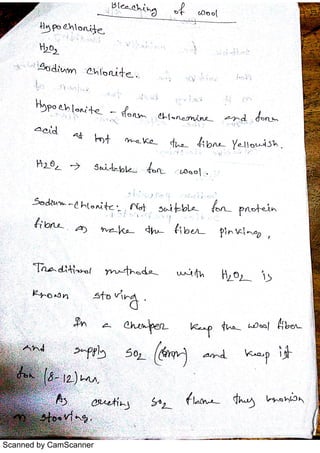 Bleaching of wool
Hypochlorite
H2O2
Sodium chlorite.
Hypochlorite - form chloramine and form
acid at hot make the fibre Yellowish.
H2O2 → Suitable for wool.
Sodium-chlorite: Not suitable for protein
fibre as make the fiber pinking,
Traditional methode with H2O2 is
known stoving.
In a chamber keep the wool fiber
and supply SO2 and keep it
for (8-12) hrs.
As creating SO2 flame they known
as stooving.
Scanned by CamScanner